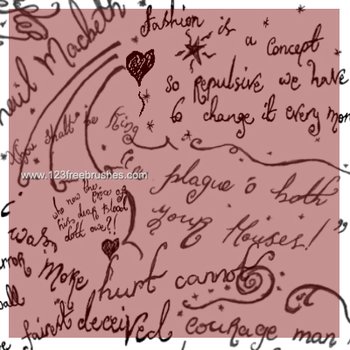 Fashion is a concept
so repulsive we have
to change it every mon
hail Macbeth
You shall be king
www.123freebrushes.com
plague o' both
your Houses!"
who now the price of
his dear blood
doth owe?!
was
more
hurt cannot
fairest deceived courage man